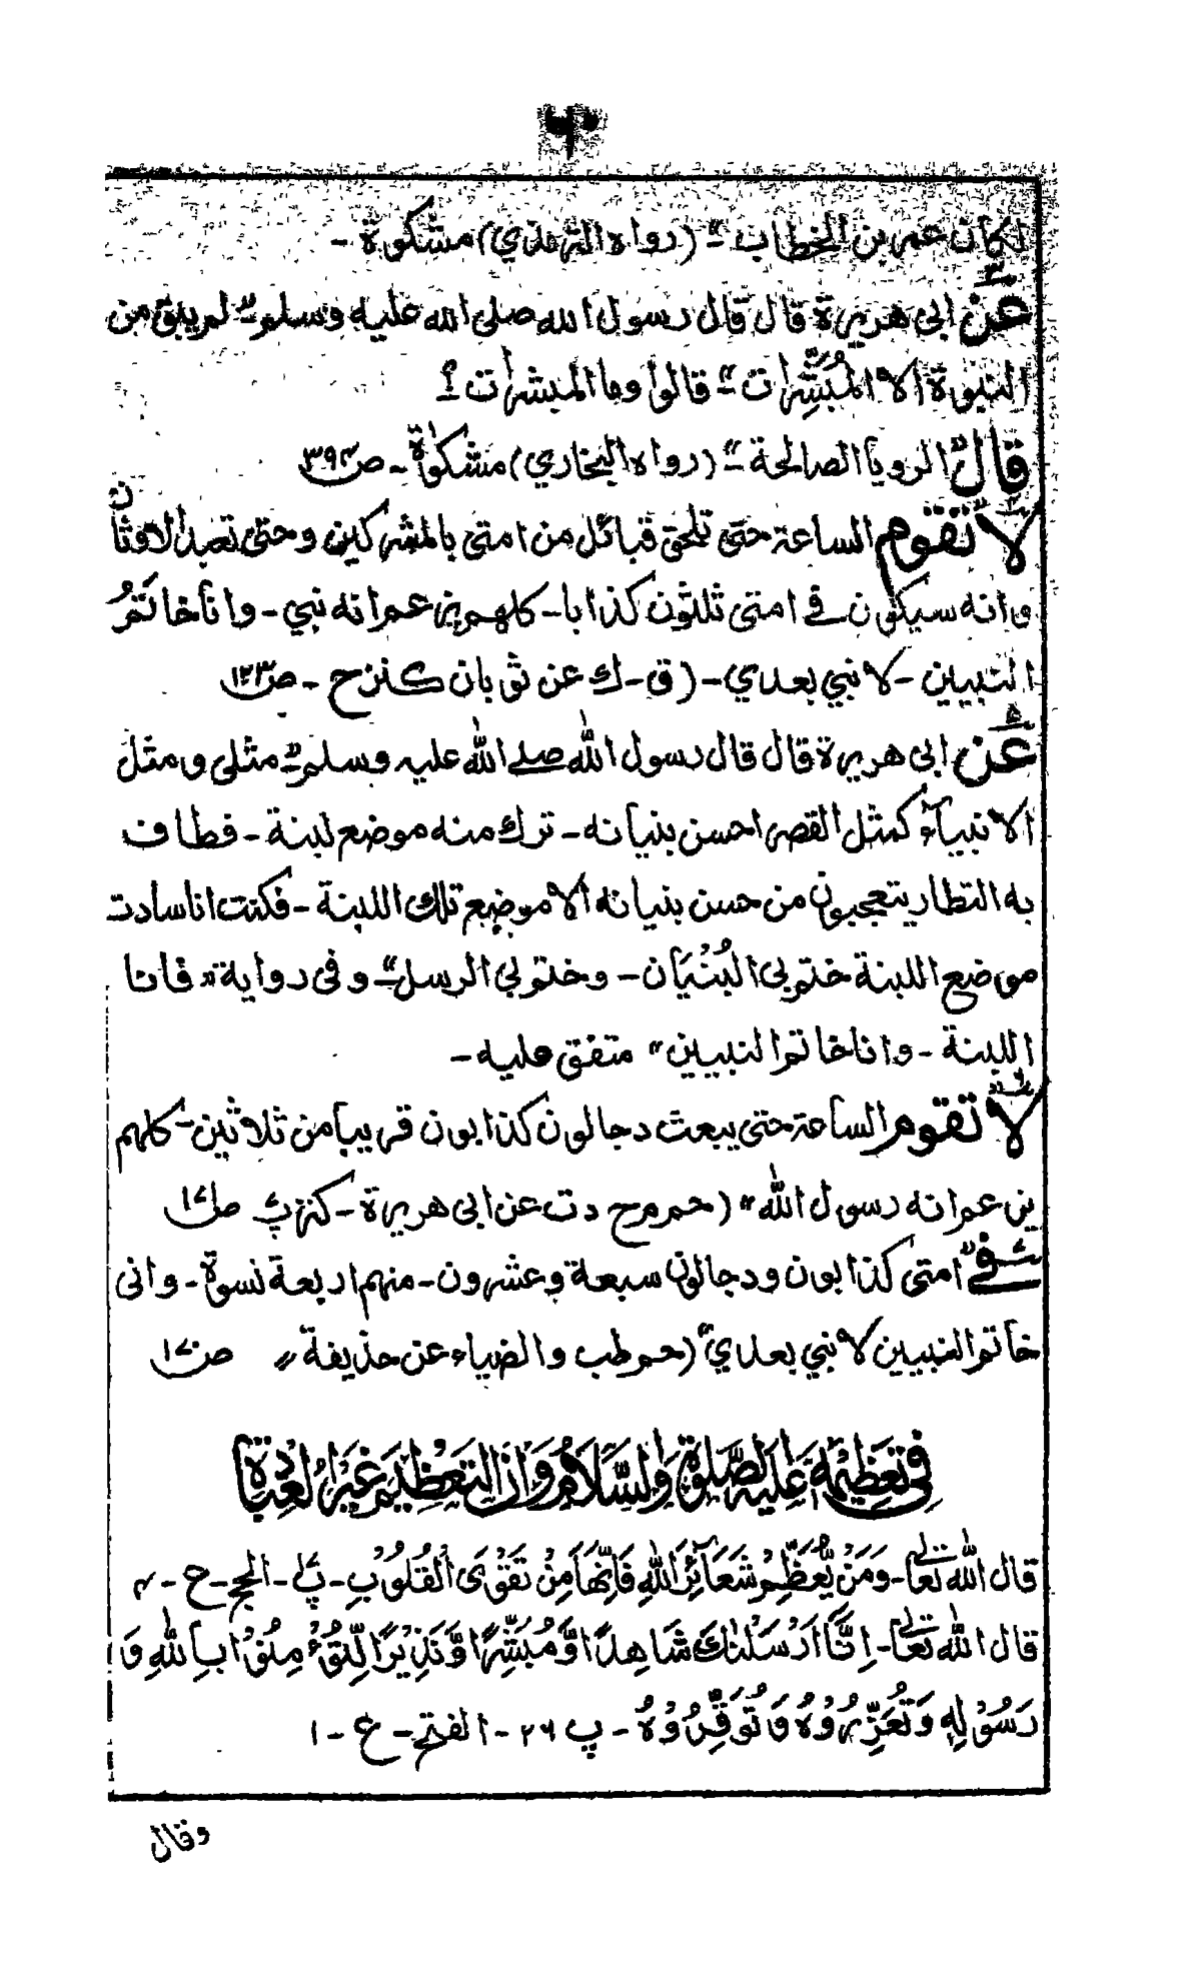 ۶۰
لكان عمر بن الخطاب" - (رواه الترمذي) مشكوة -
۳ عن ابى هريرة قال قال رسول الله صلى الله عليه وسلم" لم يبق من
النبوة الا المُبَشِّرات" - قالوا وما المبشرات ؟
قال" الرويا الصالحة" - (رواه البخاري) مشكوٰة - ص۳۹۴
لا تقوم الساعة حتى تلحق قبائل من امتى بالمشركين وحتى تعبد الاوثان
وانه سيكون فى امتى ثلثون كذابا - كلهم يزعم انه نبي - وانا خاتَمُ
النبيين - لا نبي بعدي - (ق - ك عن ثوبان كنز ح - ص۱۲۳
۵ عن ابى هريرة قال قال رسول الله صلے الله عليه وسلم" مثلى ومثل
الانبياء كمثل القصر احسن بنيانه - ترك منه موضع لبنة - فطاف
به النظار يتعجبون من حسن بنيانه الا موضع تلك اللبنة - فكنت انا سادت
موضع اللبنة ختم بى البُنْيَان - وختم بي الرسل" - وفى رواية" فانا
اللبنة - وانا خاتم النبيين" متفق عليه -
۶ لا تقوم الساعة حتى يبعث دجالون كذابون قريبا من ثلاثين - كلهم
يزعم انه رسول الله" (حم م ح د ت عن ابى هريرة - كنز ص۱۷۱
۷ فے" امتى كذابون ودجالون سبعة وعشرون - منهم اربعة نسوة - وانى
خاتم النبيين لا نبي بعدي" (حم طب والضياء عن حذيفة " ص۱۷۰
فِى تَعْظِيْمِهٖ عَلَيْهِ الصَّلٰوةُ وَالسَّلَامُ وَاَنَّ التَّعْظِيْمَ غَيْرُ الْعِبَادَةِ
قال الله تعالى - وَمَنْ يُّعَظِّمْ شَعَآئِرَ اللهِ فَاِنَّهَا مِنْ تَقْوَى الْقُلُوْبِ - پ۱۷ - الحج - ح - ۴
قال الله تعالى - اِنَّا اَرْسَلْنٰكَ شَاهِدًا وَّمُبَشِّرًا وَّنَذِيْرًا لِّتُؤْمِنُوْا بِاللهِ وَ
رَسُوْلِهٖ وَتُعَزِّرُوْهُ وَتُوَقِّرُوْهُ - پ ۲۶ - الفتح - ع - ۱
وقال